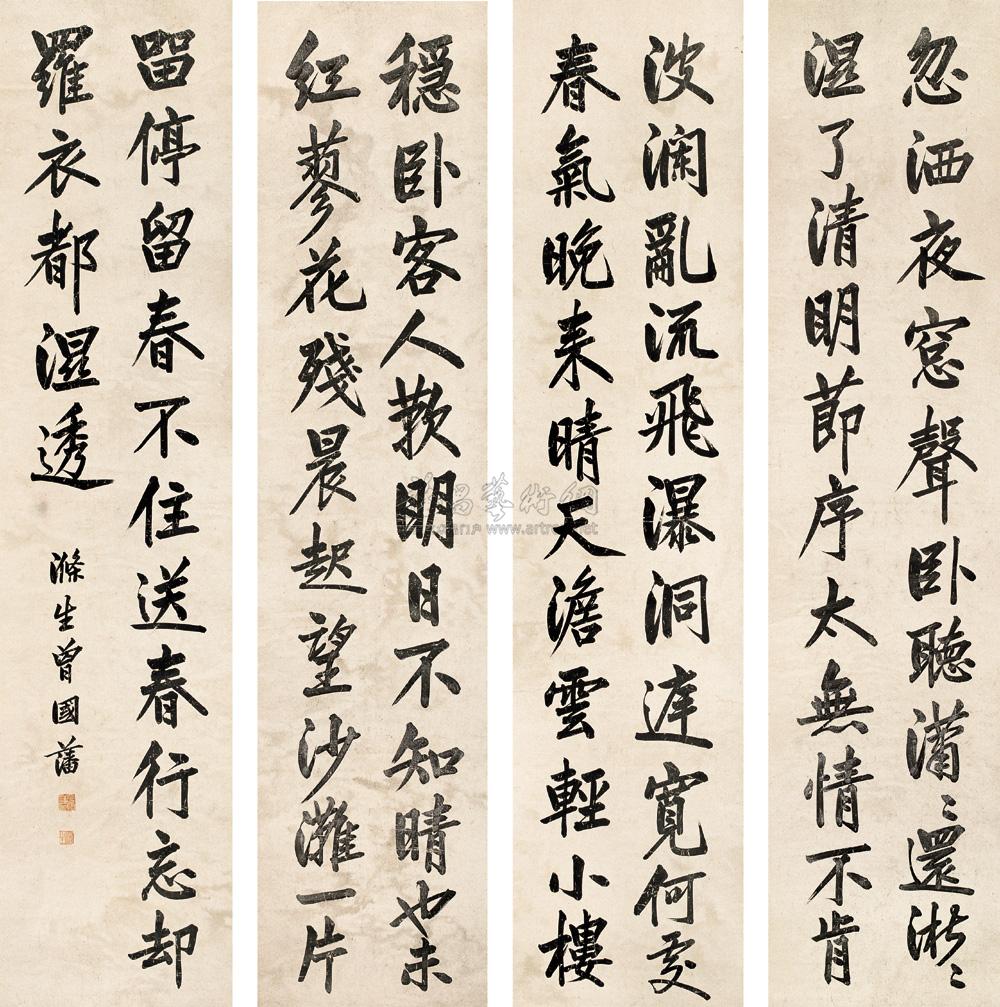 忽洒夜窓聲卧聽瀟〻還淅〻
湿了清明莭序太無情不肯
波瀾亂流飛瀑洞達寬何處
春氣晚来晴天澹雲輕小樓
穩卧客人歎明日不知晴也未
紅蓼花殘晨起望沙灘一片
畱停留春不住送春行忘却
羅衣都湿透
滌生曾國藩
昌藝術網